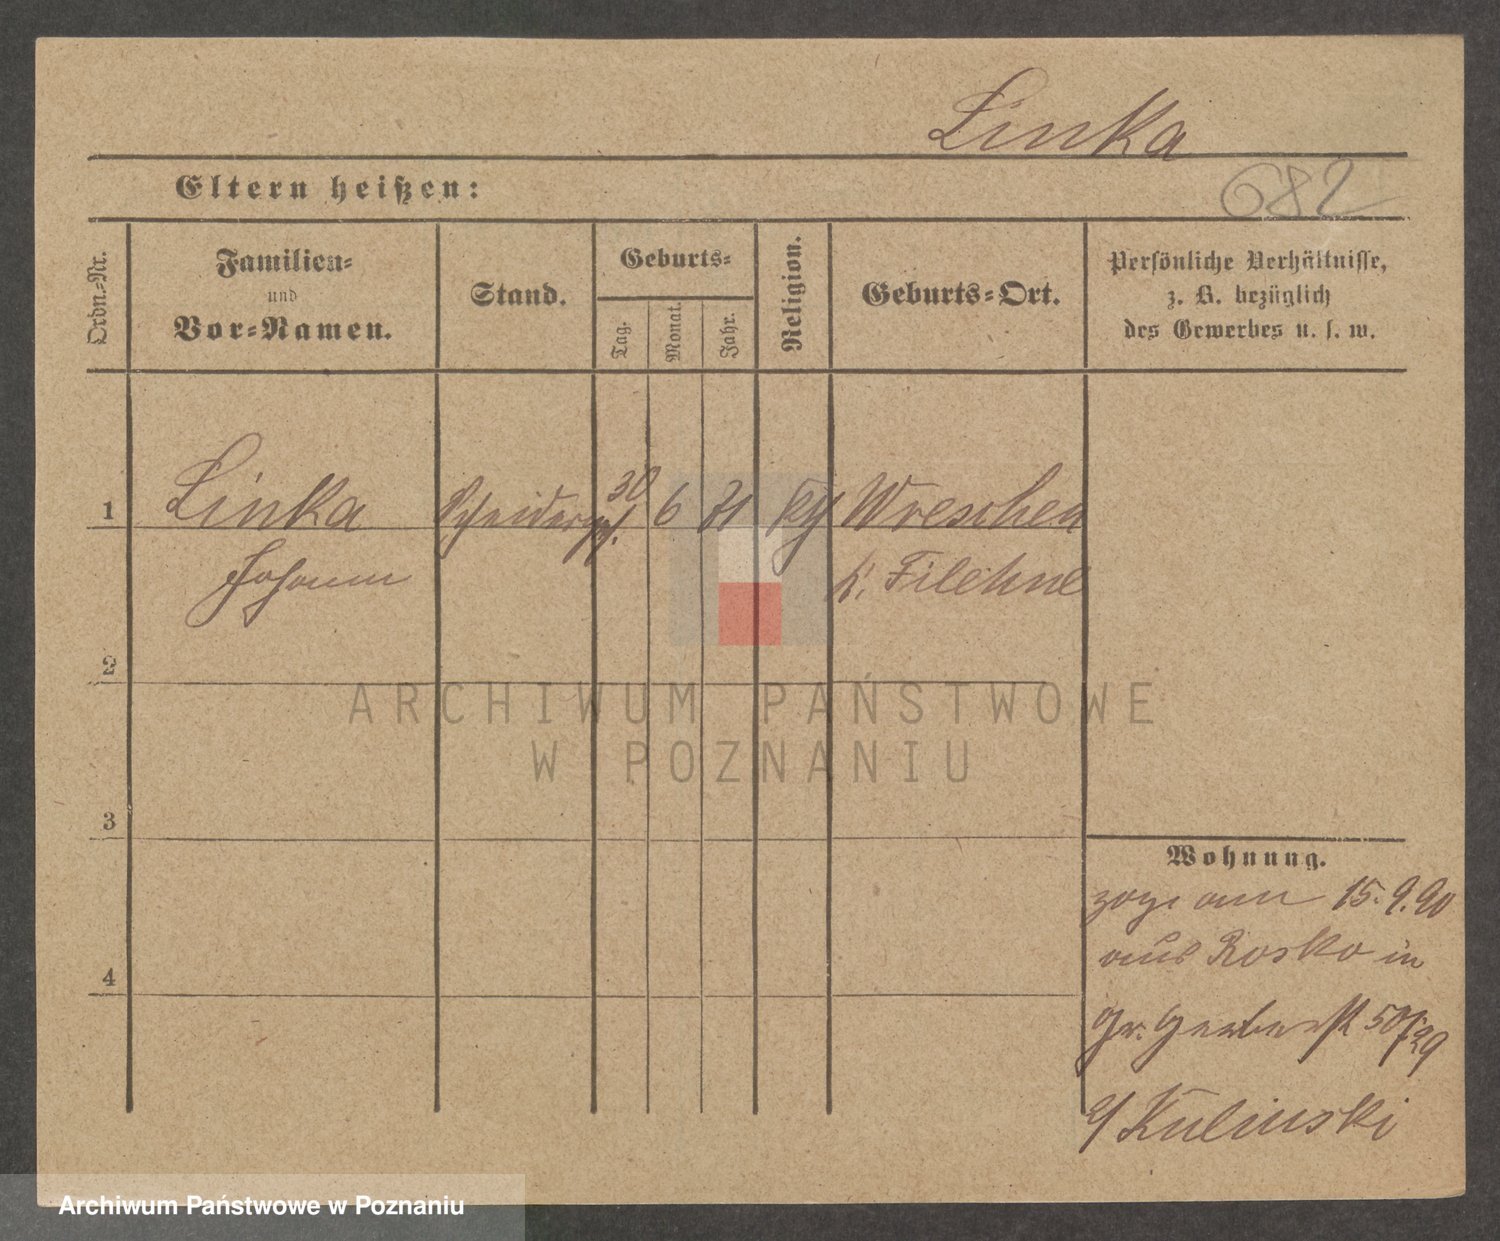 Linka
Eltern heißen:
682
Ordn.-Nr.
Familien-
und
Vor-Namen.
Stand.
Geburts-
Tag.
Monat.
Jahr.
Religion.
Geburts-Ort.
Persönliche Verhältnisse,
z. B. bezüglich
des Gewerbes u. s. w.
1
Linka
Johann
30
6
71
Wreschen
b. Filehne
2
3
4
ARCHIWUM PAŃSTWOWE
W POZNANIU
Wohnung.
am 15.9.90
aus Rosko in
Gr. Gerberst 50/29
Kulinski
Archiwum Państwowe w Poznaniu